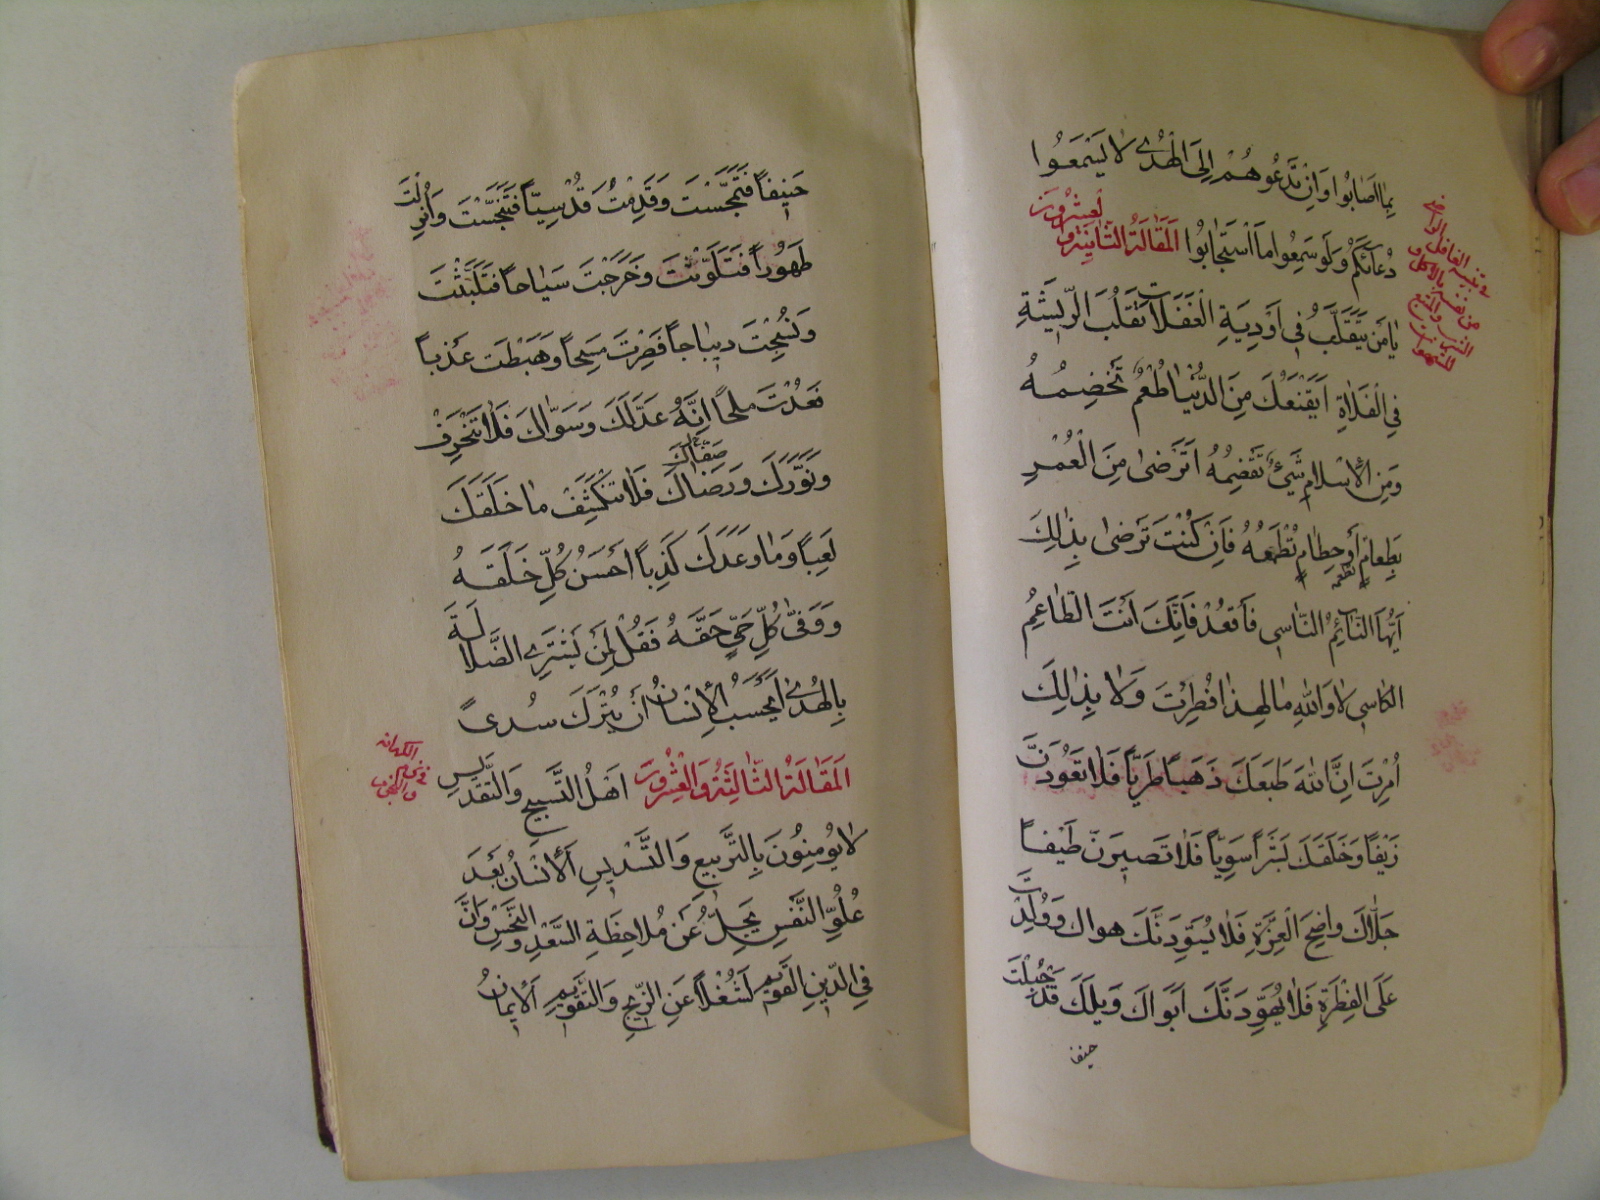 بِمَا اَصَابُوا وَاِنْ تَدْعُوهُمْ اِلَى الْهُدٰى لَا يَسْمَعُوا
دُعَائَكُمْ وَلَوْ سَمِعُوا مَا اسْتَجَابُوا اَلْمَقَالَةُ الثَّانِيَةُ وَالْعِشْرُونَ
يَا مَنْ يَتَقَلَّبُ فِي اَوْدِيَةِ الْغَفَلَاتِ تَقَلُّبَ الرِّيْشَةِ
فِي الْفَلَاةِ اَيَقْنَعُكَ مِنَ الدُّنْيَا طُعْمٌ تَخْضِمُهُ
وَمِنَ الْاِسْلَامِ شَيْءٌ تَقْضِمُهُ اَتَرْضٰى مِنَ الْعُمْرِ
بِطَعَامٍ اَوْ حِطَامٍ تُطْعَمُهُ فَاِنْ كُنْتَ تَرْضٰى بِذٰلِكَ
اَيُّهَا النَّائِمُ النَّاسِى فَاقْعُدْ فَاِنَّكَ اَنْتَ الطَّاعِمُ
الْكَاسِى لَا وَاللهِ مَا لِهٰذَا فُطِرْتَ وَلَا بِذٰلِكَ
اُمِرْتَ اِنَّ اللهَ طَبَعَكَ ذَهَبًا طَرِيًّا فَلَا تَعُودَنَّ
زَيْفًا وَخَلَقَكَ بَشَرًا سَوِيًّا فَلَا تَصِيرَنَّ طَيْفًا
جَلَاكَ وَاضِحَ الْغُرَّةِ فَلَا يُسَوِّدَنَّكَ هَوَاكَ وَوُلِدْتَ
عَلَى الْفِطْرَةِ فَلَا يُهَوِّدَنَّكَ اَبَوَاكَ وَيْلَكَ قَدْ جُبِلْتَ
حنيفا
حَنِيفًا فَتَمَجَّسْتَ وَقَدِمْتَ قُدْسِيًّا فَتَنَجَّسْتَ وَاُنْزِلْتَ
طَهُورًا فَتَلَوَّثْتَ وَخَرَجْتَ سَيَّاحًا فَتَلَبَّثْتَ
وَنُسِجْتَ دِيبَاجًا فَصِرْتَ مِسْحًا وَهَبَطْتَ عَذْبًا
فَعُدْتَ مِلْحًا اِنَّهُ عَدَّلَكَ وَسَوَّاكَ فَلَا تَنْحَرِفْ
وَنَوَّرَكَ وَرَضَاكَ فَلَا تَنْكَسِفْ مَا خَلَقَكَ
صَفَّاكَ
لَعِبًا وَمَا وَعَدَكَ كَذِبًا اَحْسَنُ كُلِّ خَلْقِهِ
وَوَفّٰى كُلَّ حَيٍّ حَقَّهُ فَقُلْ لِمَنْ يَشْتَرِى الضَّلَالَةَ
بِالْهُدٰى اَيَحْسَبُ الْاِنْسَانُ اَنْ يُتْرَكَ سُدًى
اَلْمَقَالَةُ الثَّالِثَةُ وَالْعِشْرُونَ اَهْلُ التَّسْبِيحِ وَالتَّقْدِيسِ
لَا يُؤْمِنُونَ بِالتَّرْبِيعِ وَالتَّسْدِيسِ اَلْاِنْسَانُ بَعْدَ
عُلُوِّ النَّفْسِ يَجِلُّ عَنْ مُلَاحَظَةِ السَّعْدِ وَالنَّحْسِ وَاِنَّ
فِي الدِّينِ الْقَوِيمِ لَشُغْلًا عَنِ الزِّيجِ وَالتَّقْوِيمِ اَلْاِيمَانُ